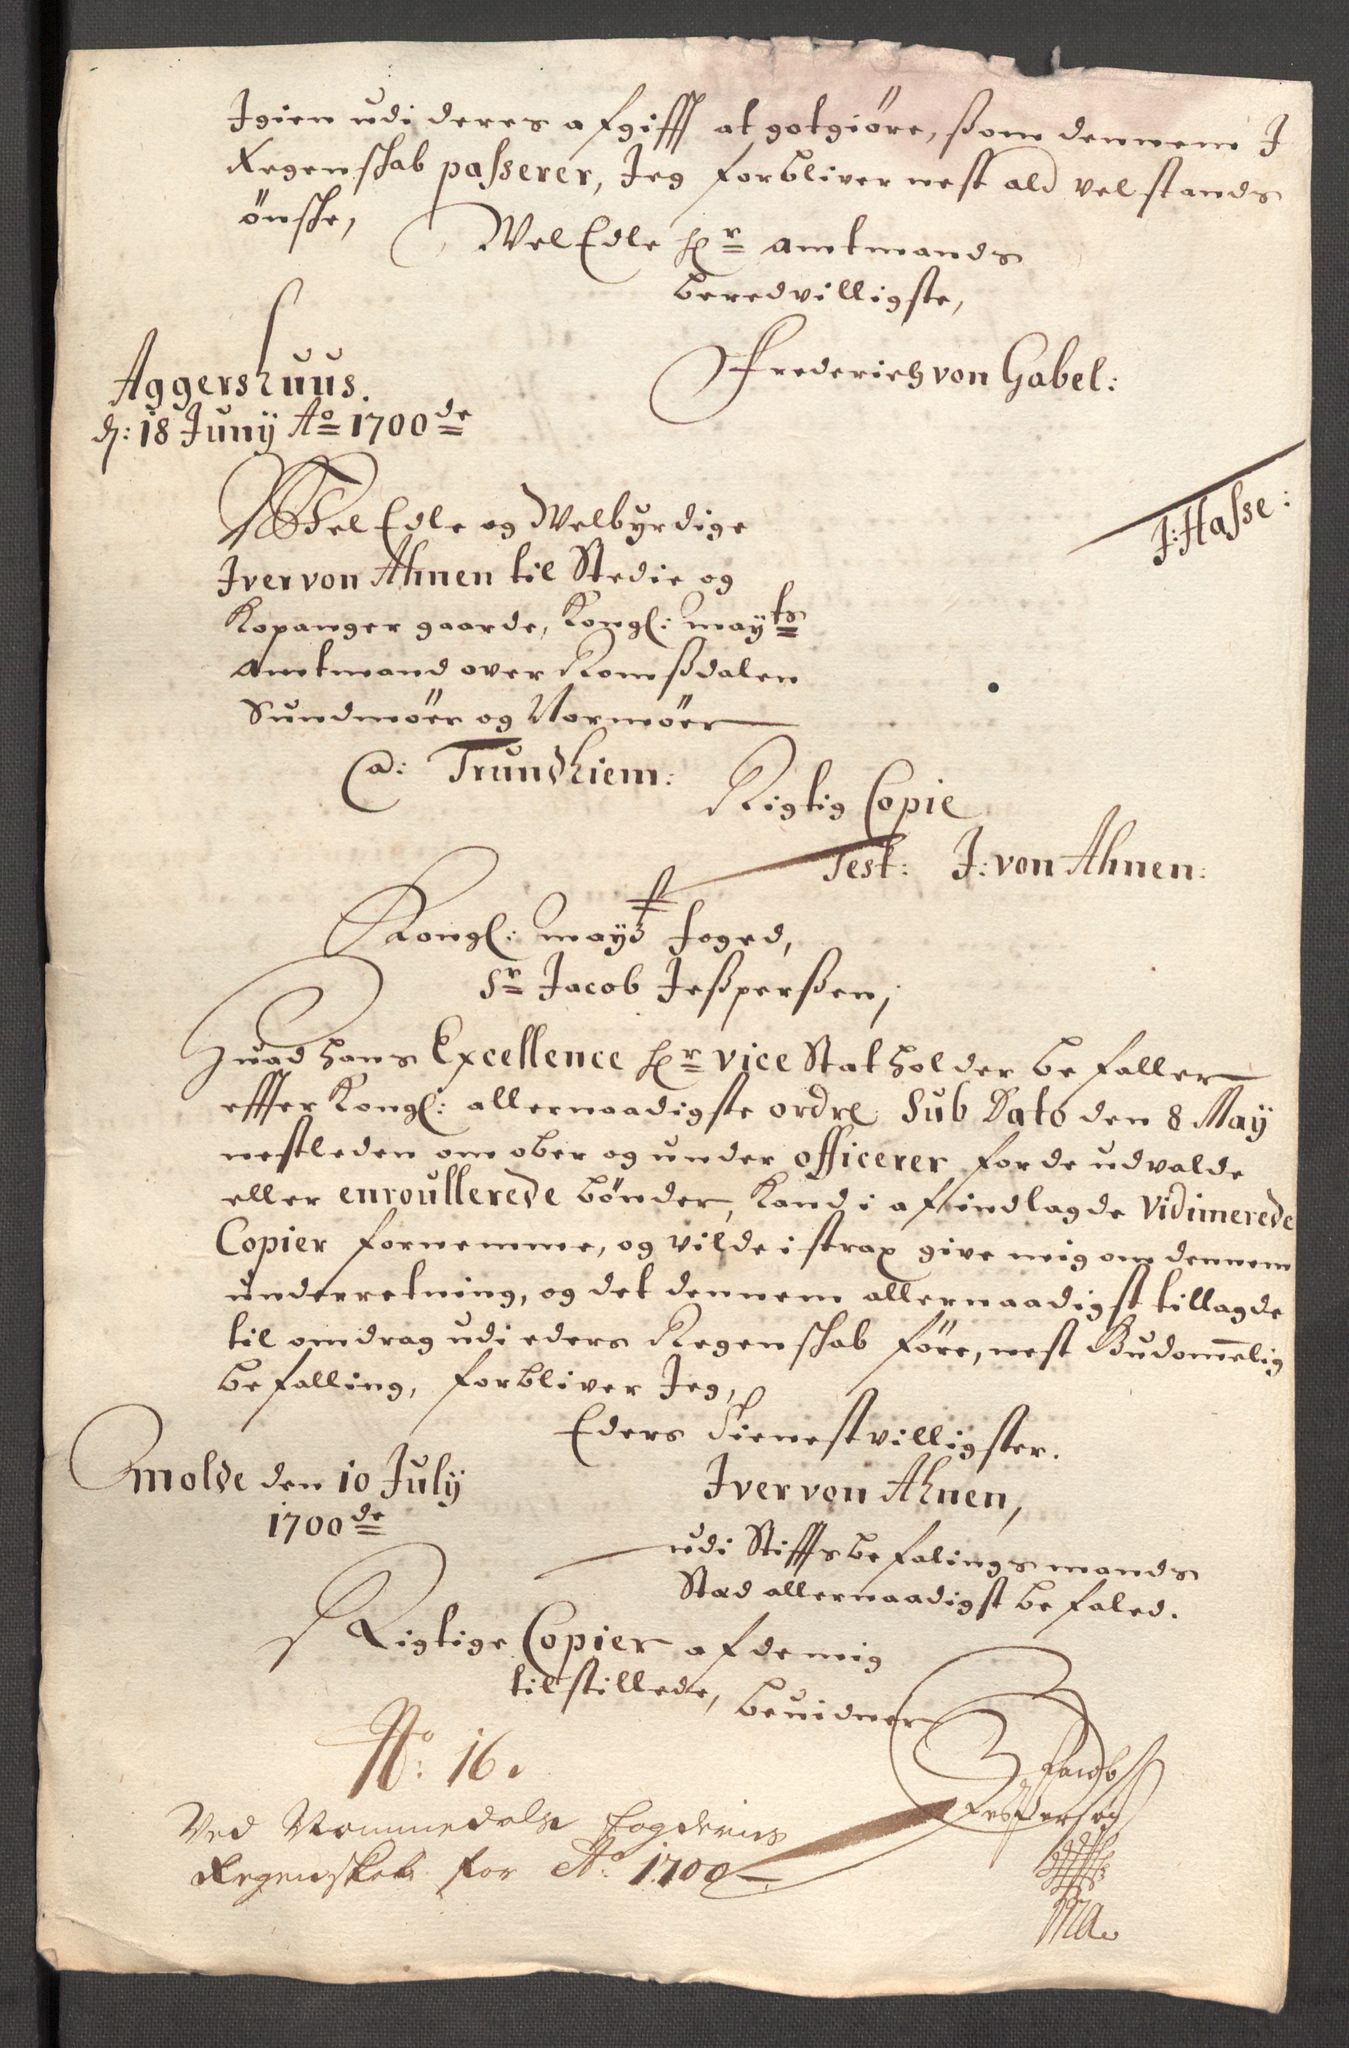 Igien udi deres afgifft at gotgiøre, ßom dennem I
Regenskab passerer, Jeg forbliver nest ald velstands
ønske,
WelEdle Hr Amtmands
beredvilligste,
Frederich von Gabel:
Aggershuus.
d: 18 Junÿ Ao 1700de
J: Hasse:
Wel Edle og Welbyrdige
Iver von Ahnen til Stedie og
Kopanger gaarde, Kongl: mayts
Amtmand over Romßdalen
Sundmöer og Normöer
a: Trundhiem:
Rigtig Copie
Test: J: von Ahnen:
Kongl: mayts foged,
Sr Jacob Jeßperßen,
Huad hans Excellence Hr vice Statholder befaller
effter Kongl: allernaadigste ordre Sub Dato den 8 May
nestleden om ober og under officerer for de udvalde
eller enroullerede bønder, kand i af indlagde vidimerede
Copier fornemme, og vilde i strax give mig om dennem
underretning, og det dennem allernaadigst tillagde
til omdrag udi eders Regenskab føre, nest Gudom̅elig
befalling, forbliver Jeg,
Eders dienestvilligster.
Molde den 10 July
1700de
Iver von Ahnen,
udi Stifftsbefalingsmands
Sted allernaadigst befaled.
Rigtige Copier af de mig
tilstillede, beuidner
Jacob
Jesperßen
No: 16.
Ved Rommsdals fogderies
Regenskab for Ao: 1700